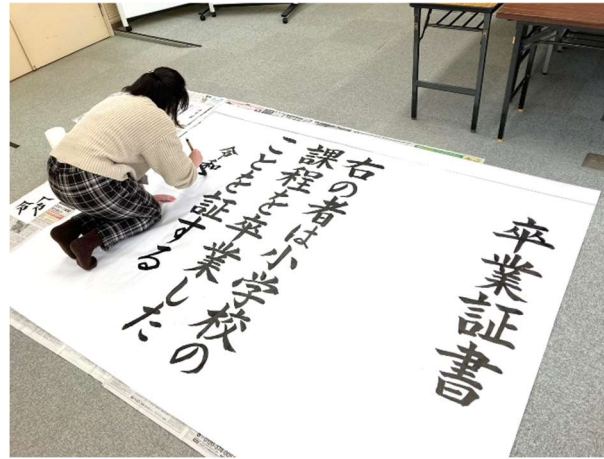 卒業証書
右の者は小学校の
課程を卒業した
ことを証する
令和